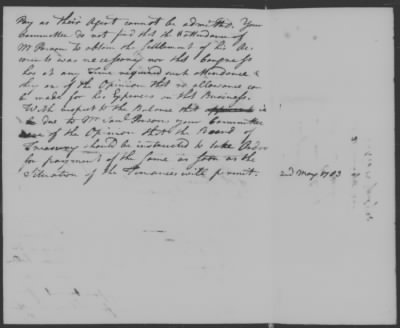 Pay as their Agent cannot be admitted. Your
Committee do not find that the Attendance of
Mr Parsons to obtain the Settlement of his Ac-
counts was necessary nor that Congress
has at any Time required such Attendance &
they are of the Opinion that no allowance can
be made for his Expences in that Business.
With respect to the Balance that is
due to Mr Saml Parsons your Committee
of the Opinion that the Board of
Treasury should be instructed to take Order
for payment of the same as soon as the
Situation of the Finances will permit.
2nd May 1783